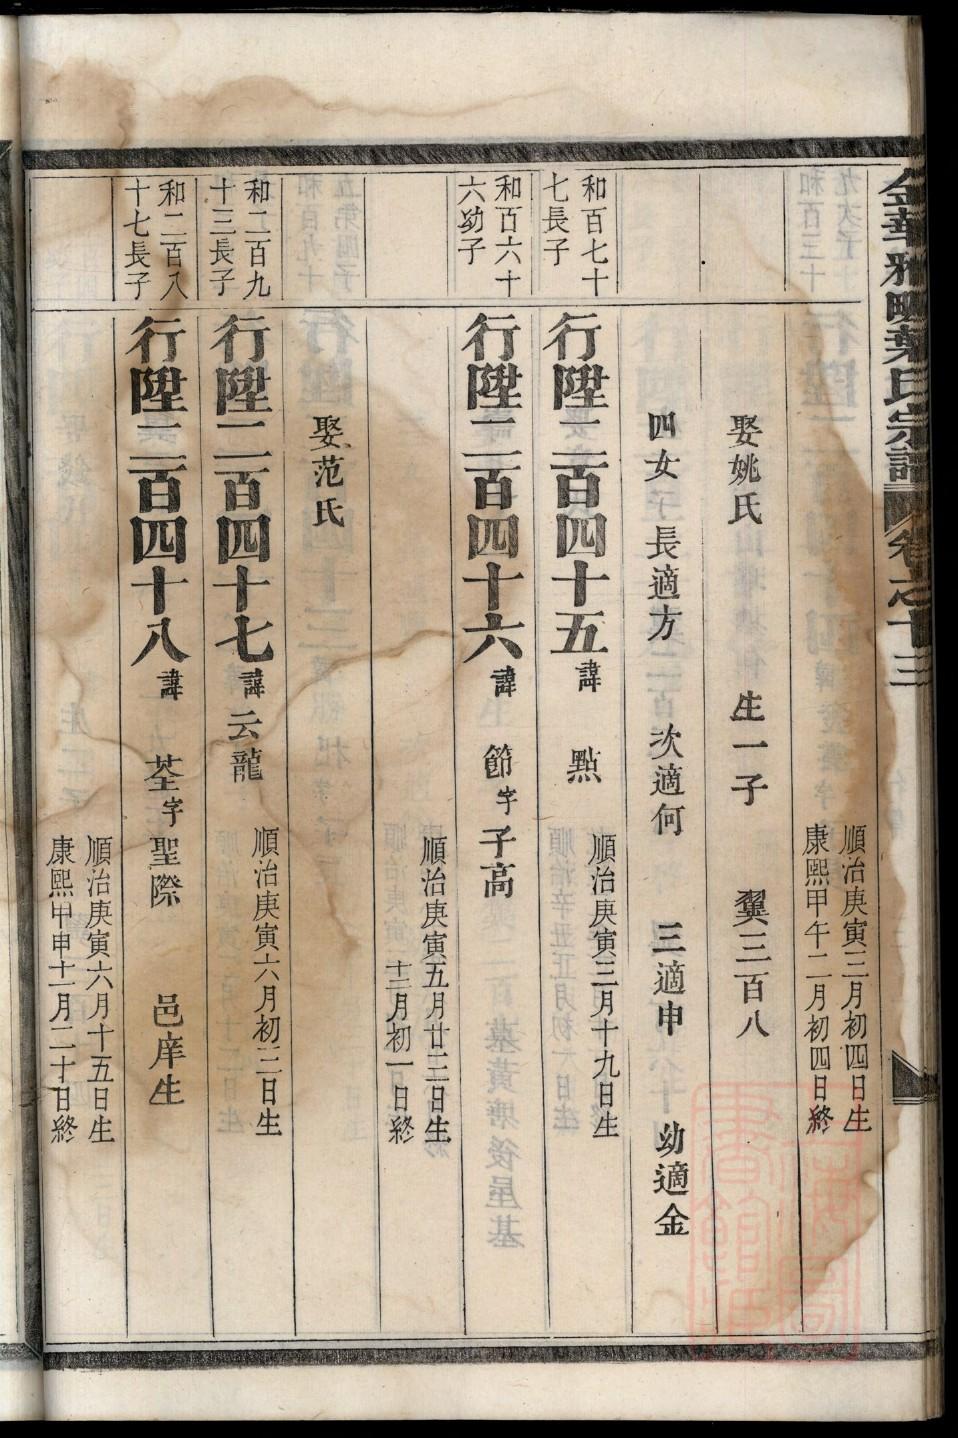 金華雅畈葉氏宗譜 卷之十三
順治庚寅三月初四日生
康熙甲午二月初四日終
娶姚氏 生一子 翼三百八
四女 長適方 次適何 三適申 幼適金
和百七十
七長子
行陞二百四十五 諱 點
順治庚寅三月十九日生
和百六十
六幼子
行陞二百四十六 諱 節 字 子高
順治庚寅五月廿二日生
十二月初一日終
娶范氏
和二百九
十三長子
行陞二百四十七 諱 云龍
順治庚寅六月初二日生
和二百八
十七長子
行陞二百四十八 諱 荃 字 聖際 邑庠生
順治庚寅六月十五日生
康熙甲申十一月二十日終